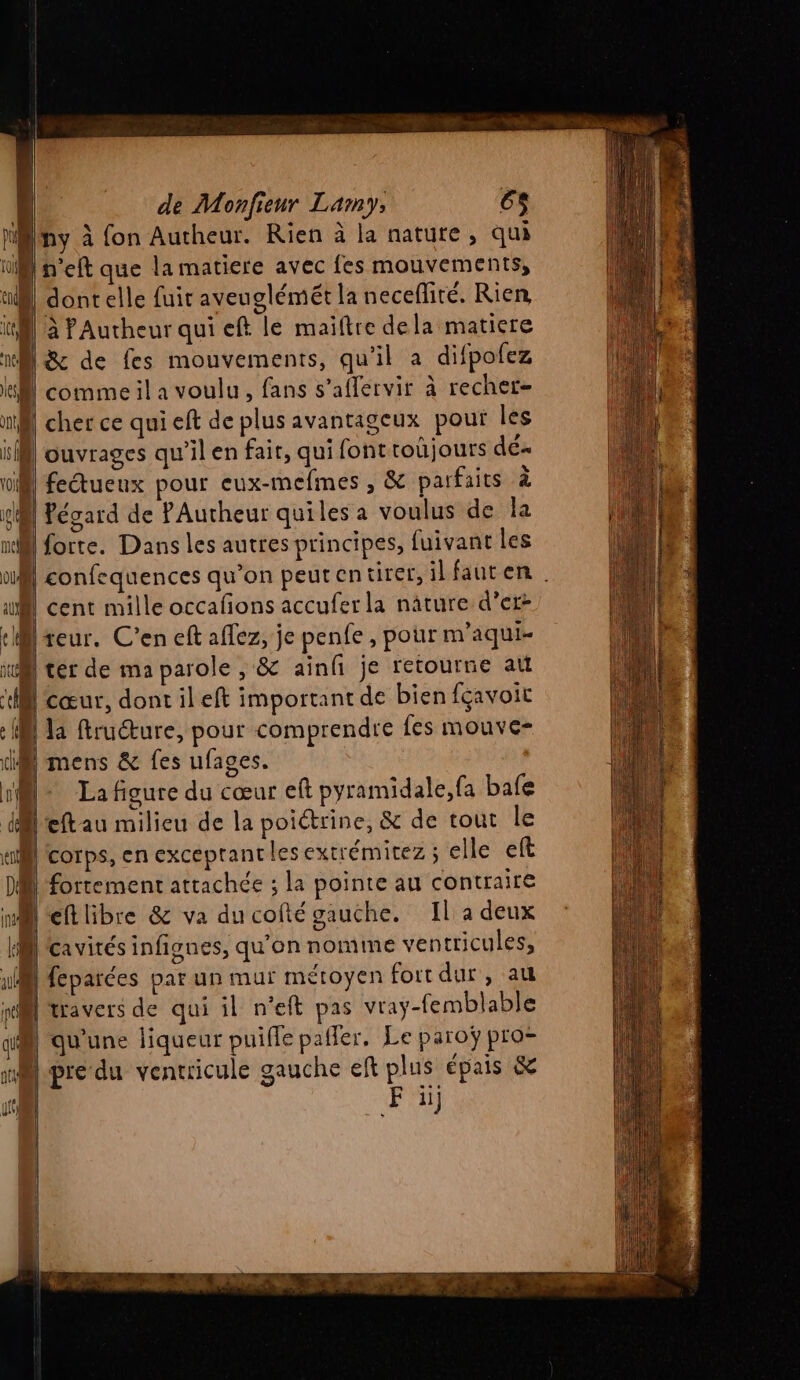 de Monſieur Lamy, 65
ny à ſon Autheur. Rien à la nature, qui
n'eſt que la matiere avec ſes mouvements,
dont elle ſuit aveuglémét la neceſſité. Rien
à l'Autheur qui eſt le maiſtre de la matiere
& de ſes mouvements, qu'il a diſpoſez
comme il a voulu, ſans s'aſſervir à recher-
cher ce qui eſt de plus avantageux pour les
ouvrages qu'il en fait, qui ſont toûjours dé-
fectueux pour eux-meſmes, & parfaits à
l'égard de l'Autheur qui les a voulus de la
ſorte. Dans les autres principes, ſuivant les
conſequences qu'on peut en tirer, il faut en
cent mille occaſions accuſer la nature d'er-
reur. C'en eſt aſſez, je penſe, pour m'aqui-
ter de ma parole, & ainſi je retourne au
cœur, dont il eſt important de bien ſçavoir
la ſtructure, pour comprendre ſes mouve-
mens & ſes uſages.
La figure du cœur eſt pyramidale, ſa baſe
eſt au milieu de la poictrine, & de tout le
corps, en exceptant les extrémitez ; elle eſt
fortement attachée ; la pointe au contraire
eſt libre & va du coſté gauche. Il a deux
cavités inſignes, qu'on nomme ventricules,
ſeparées par un mur métoyen fort dur, au
travers de qui il n'eſt pas vray-ſemblable
qu'une liqueur puiſſe paſſer. Le paroy pro-
pre du ventricule gauche eſt plus épais &
F iij